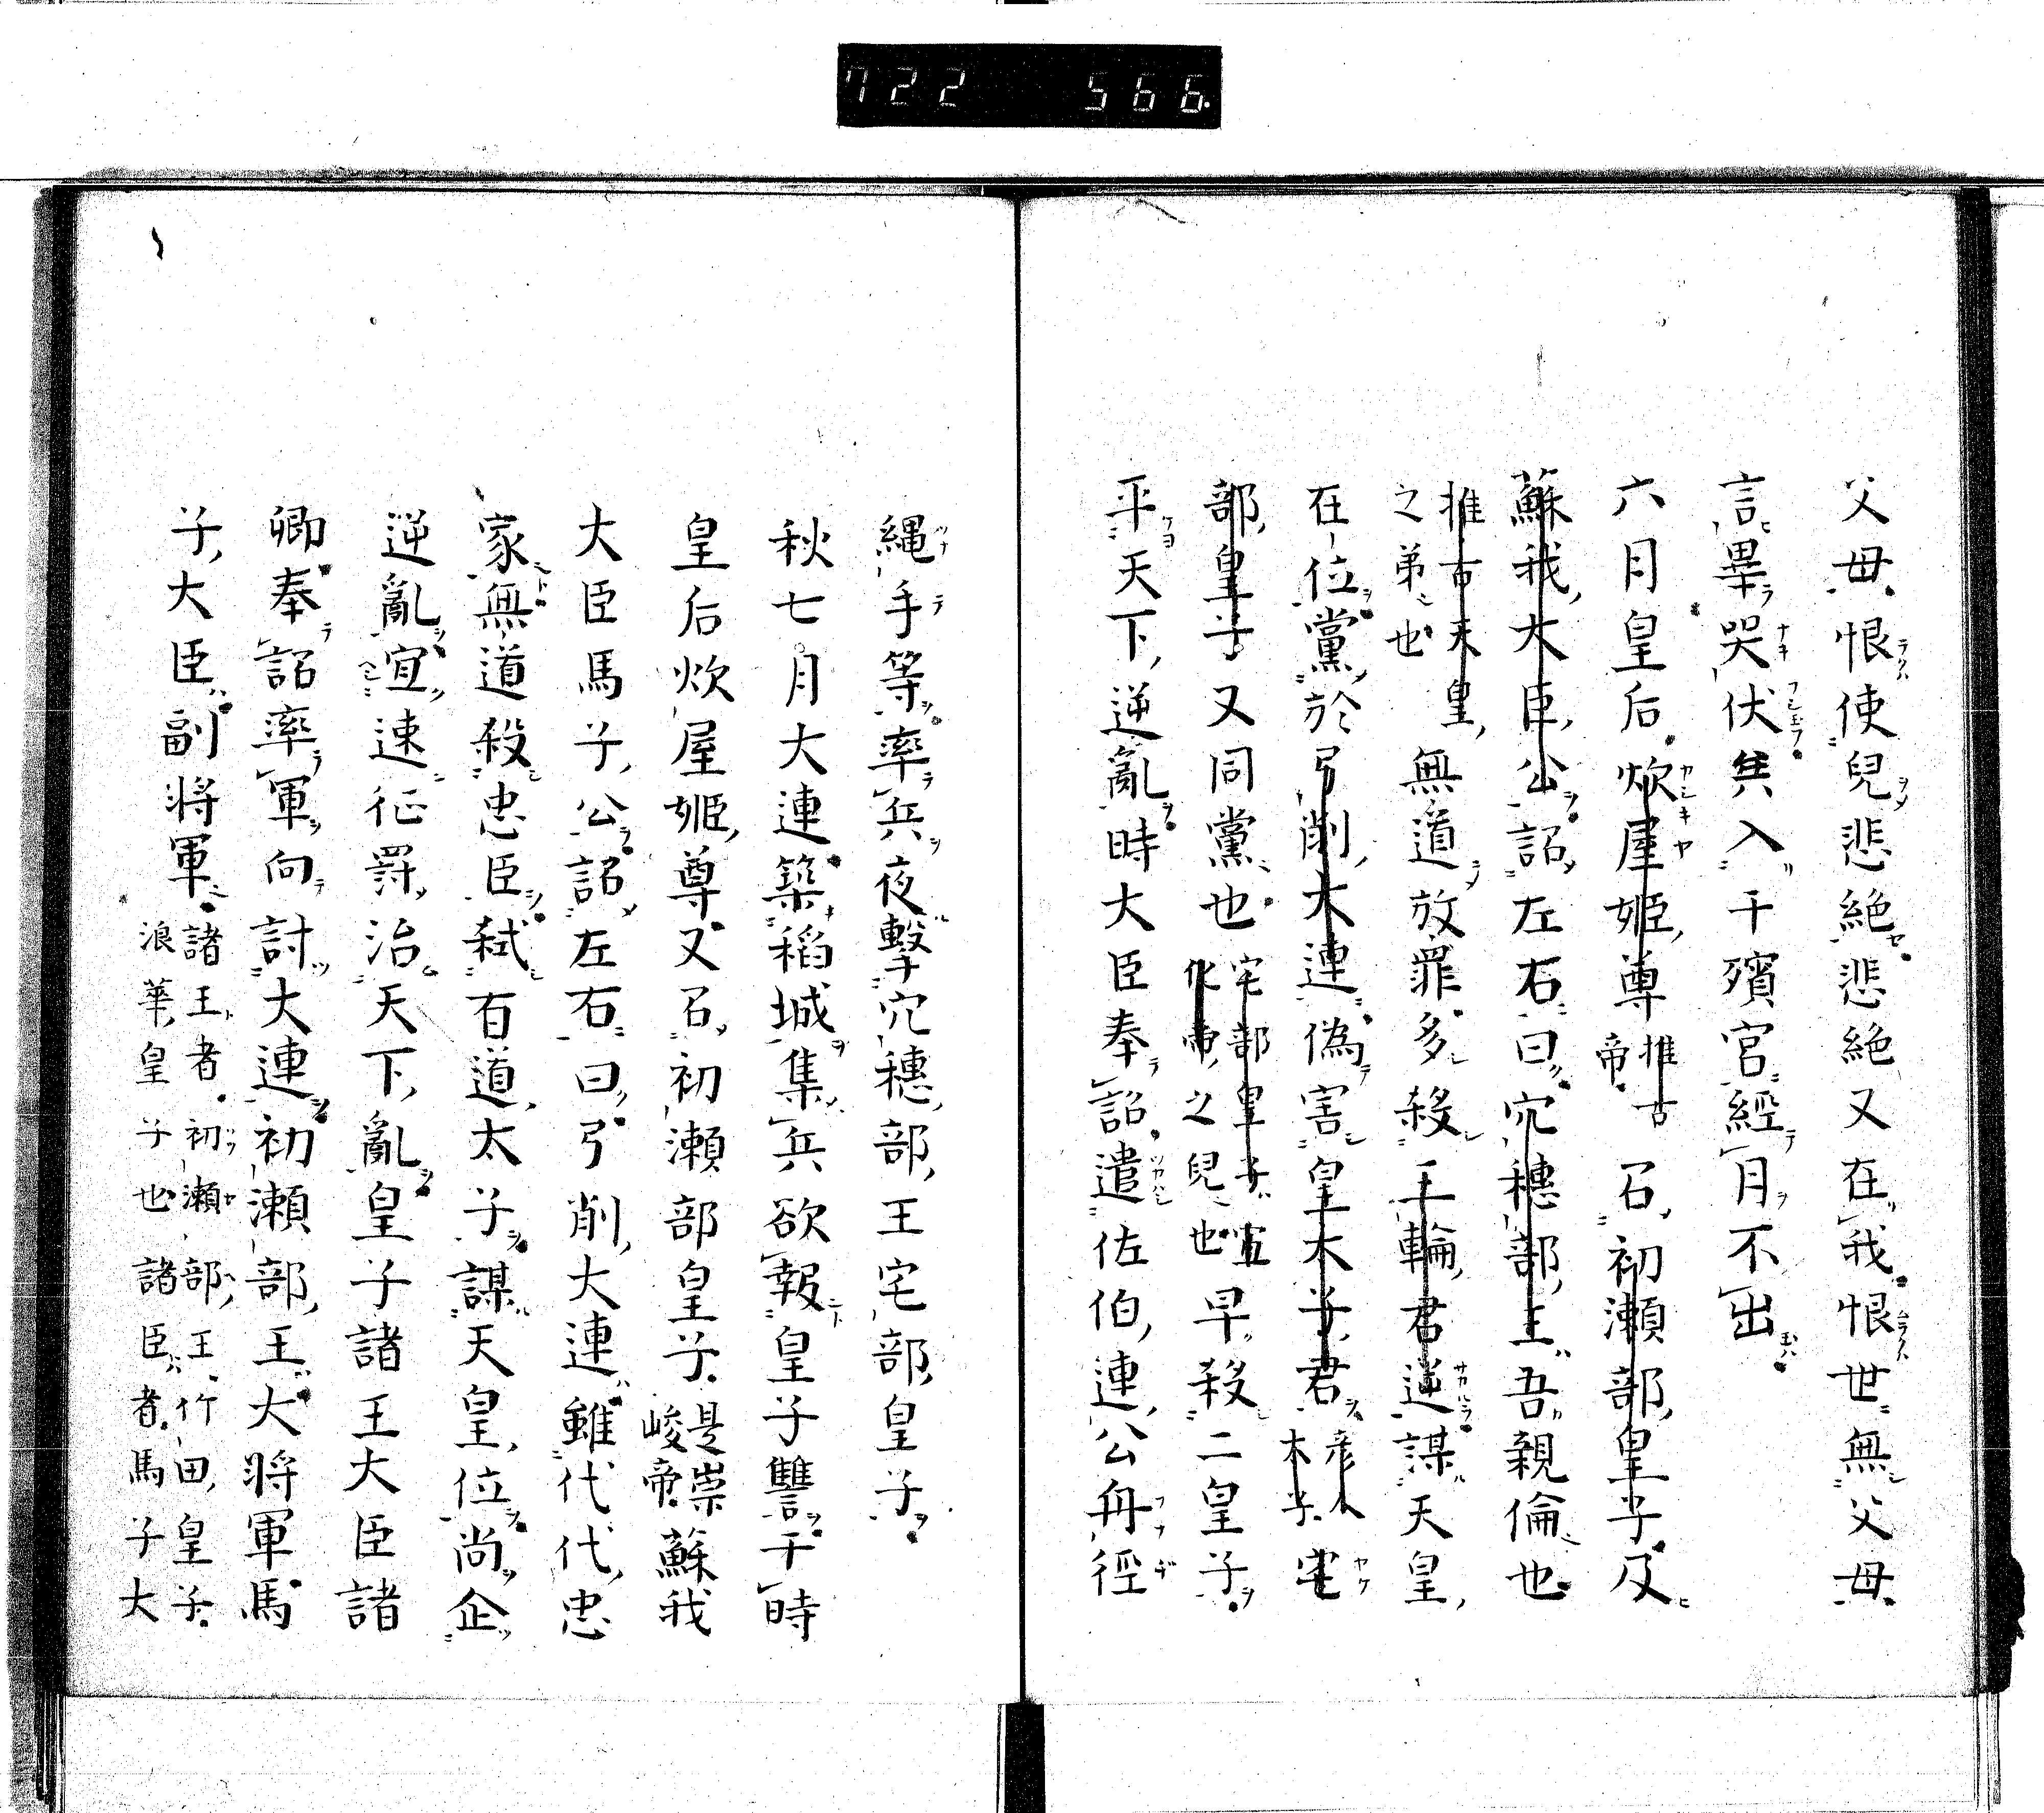 722 566.
父母恨使兒悲絶悲絶又在我恨世無父母
言畢哭伏矣入于殯宮經月不出
六月皇后炊屋姫尊推古帝召初瀬部皇子及
蘇我大臣公詔左右曰穴穂部王吾親倫也
推古天皇之弟也無道放罪多殺王輪君逆謀天皇
在位黨於弓削大連偽害皇木子君彦人木子宅
部皇子又同黨也宅部皇子宣化帝之兒也早殺二皇子
平天下逆亂時大臣奉詔遣佐伯連公舟徑
縄手等率兵夜撃穴穂部王宅部皇子
秋七月大連築稻城集兵欲報皇子讐于時
皇后炊屋姫尊又召初瀬部皇子是崇峻帝蘇我
大臣馬子公詔左右曰弓削大連雖代代忠
家無道殺忠臣弑百道太子謀天皇位尚企
逆亂宜速征罸治天下亂皇子諸王大臣諸
卿奉詔率軍向討大連初瀬部王大将軍馬
子大臣副将軍諸王者初瀬部王竹田皇子浪華皇子也諸臣者馬子大